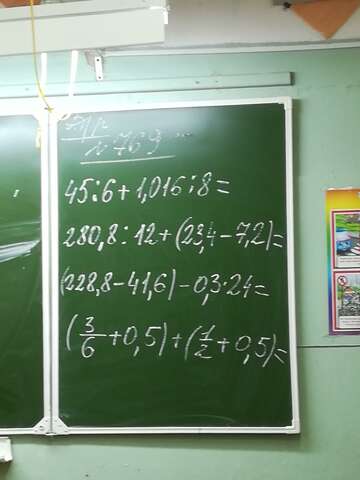 Д/р
№ 769
45:6+1,016:8=
280,8:12+(23,4-7,2)=
(228,8-41,6)-0,3·24=
(3/6+0,5)+(1/2+0,5)=